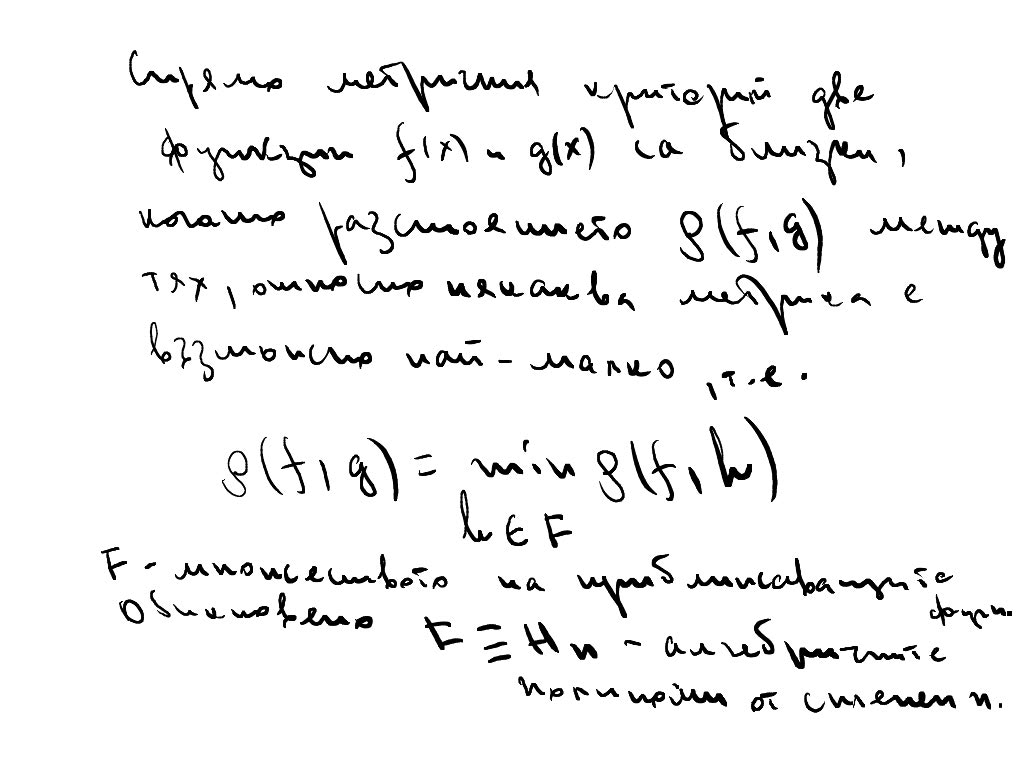 Спрямо метричния критерий две
функции f(x) и g(x) са близки,
когато разстоянието ρ(f,g) между
тях, относно някаква метрика е
възможно най-малко, т.е.
ρ(f,g) = min ρ(f,h)
h ∈ F
F - множеството на приближаващите функ.
Обикновено F ≡ Hn - алгебричните
полиноми от степен n.